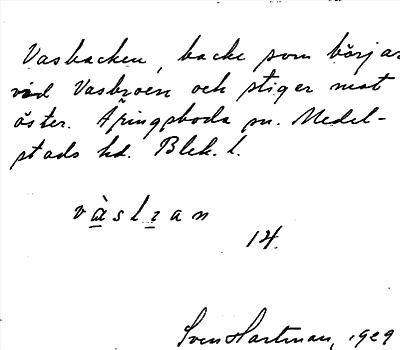 Vasbacken, backe som börjar
vid Vasbroen och stiger mot
öster. Äringsboda sn. Medel-
stads hd. Blek. l.
14.
Sven Hartman, 1929